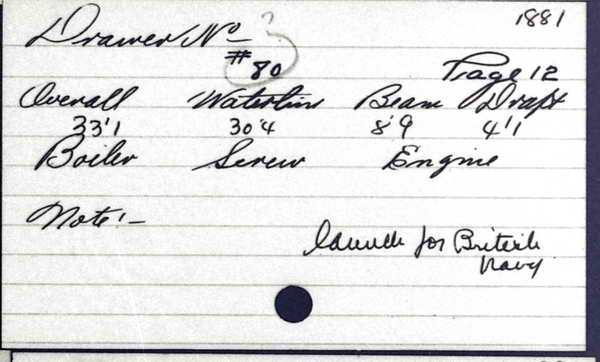 1881
Drawer No ?
# 80
Page 12
Overall Waterline Beam Draft
33'1 30'4 8'9 4'1
Boiler Screw Engine
Note:-
launch for British
navy